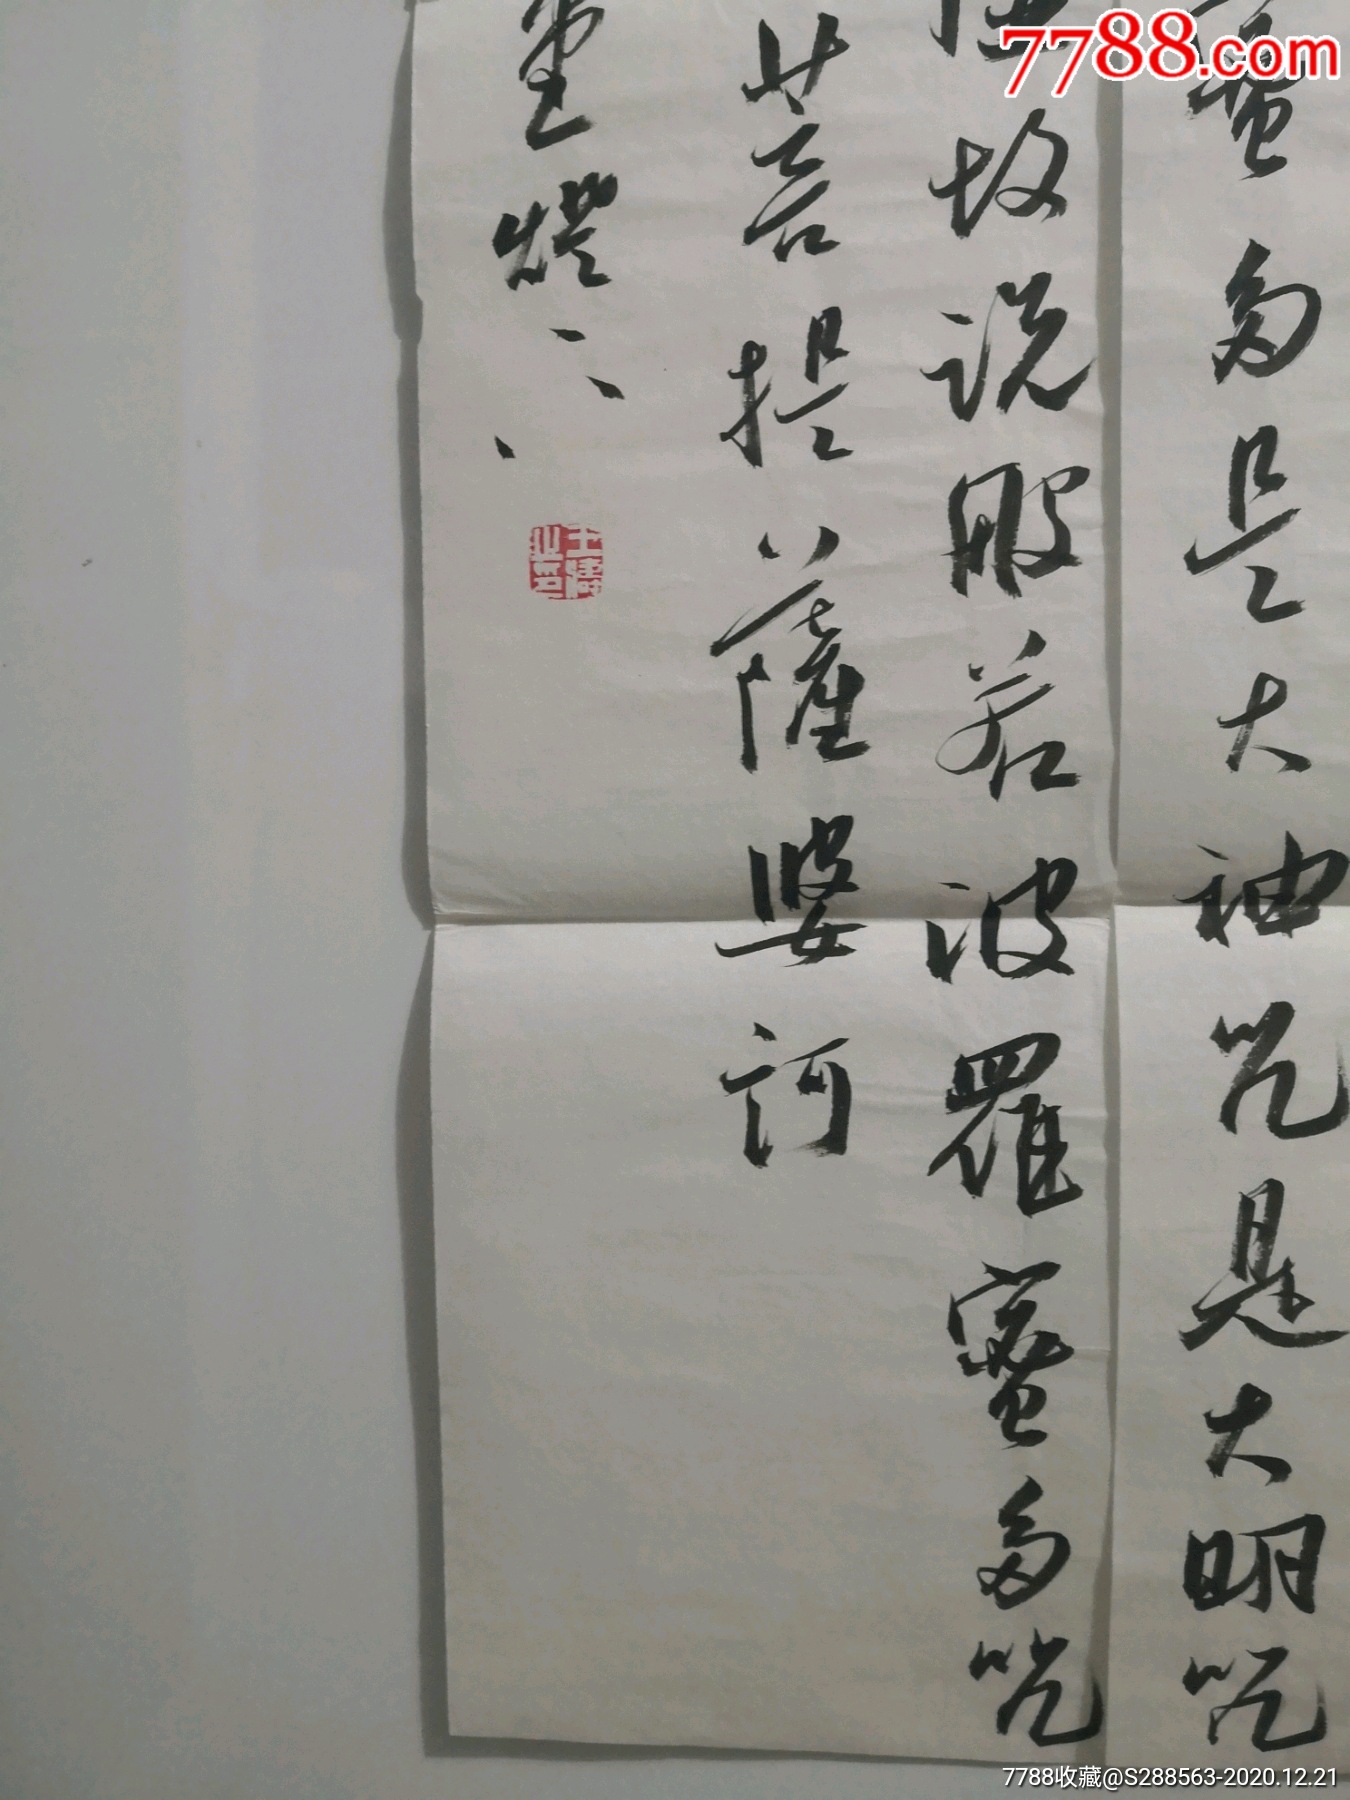 7788.com
蜜多是大神咒是大明咒
故说般若波羅蜜多咒
菩提薩婆訶
7788收藏@S288563-2020.12.21